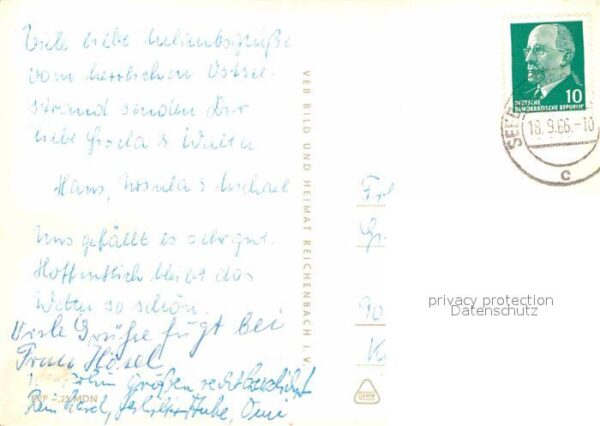 Viele liebe Urlaubsgrüße
vom herrlichen Ostsee-
strand senden Dir
liebe Gisela & Walter
Hans, Ursula & Michael
Uns gefällt es sehr gut.
Hoffentlich bleibt das
Wetter so schön.
Viele Grüße fügt bei
Frau
Grüßen recht herzlichst
Omi
EVP -,25 MDN
VEB BILD UND HEIMAT REICHENBACH I. V.
10
DEUTSCHE
DEMOKRATISCHE REPUBLIK
18.9.66.-10
c
privacy protection
Datenschutz